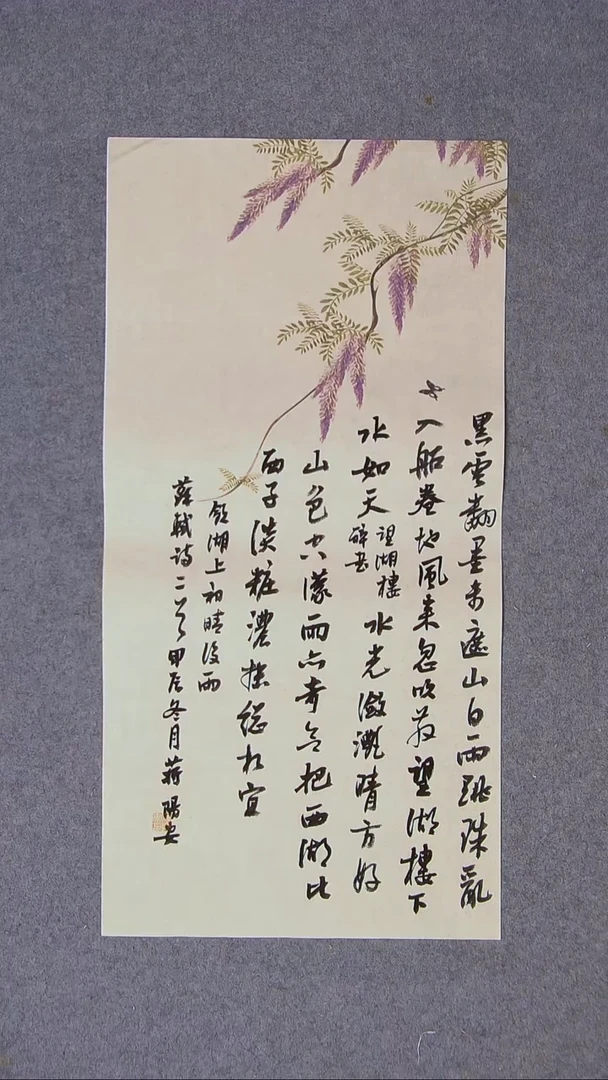 黑雲翻墨未遮山白雨跳珠亂
入船卷地風來忽吹散望湖樓下
水如天望湖樓醉書水光瀲灩晴方好
山色空濛雨亦奇欲把西湖比
西子淡粧濃抹總相宜
飲湖上初晴後雨
蘇軾詩二首甲辰冬月蔣陽安